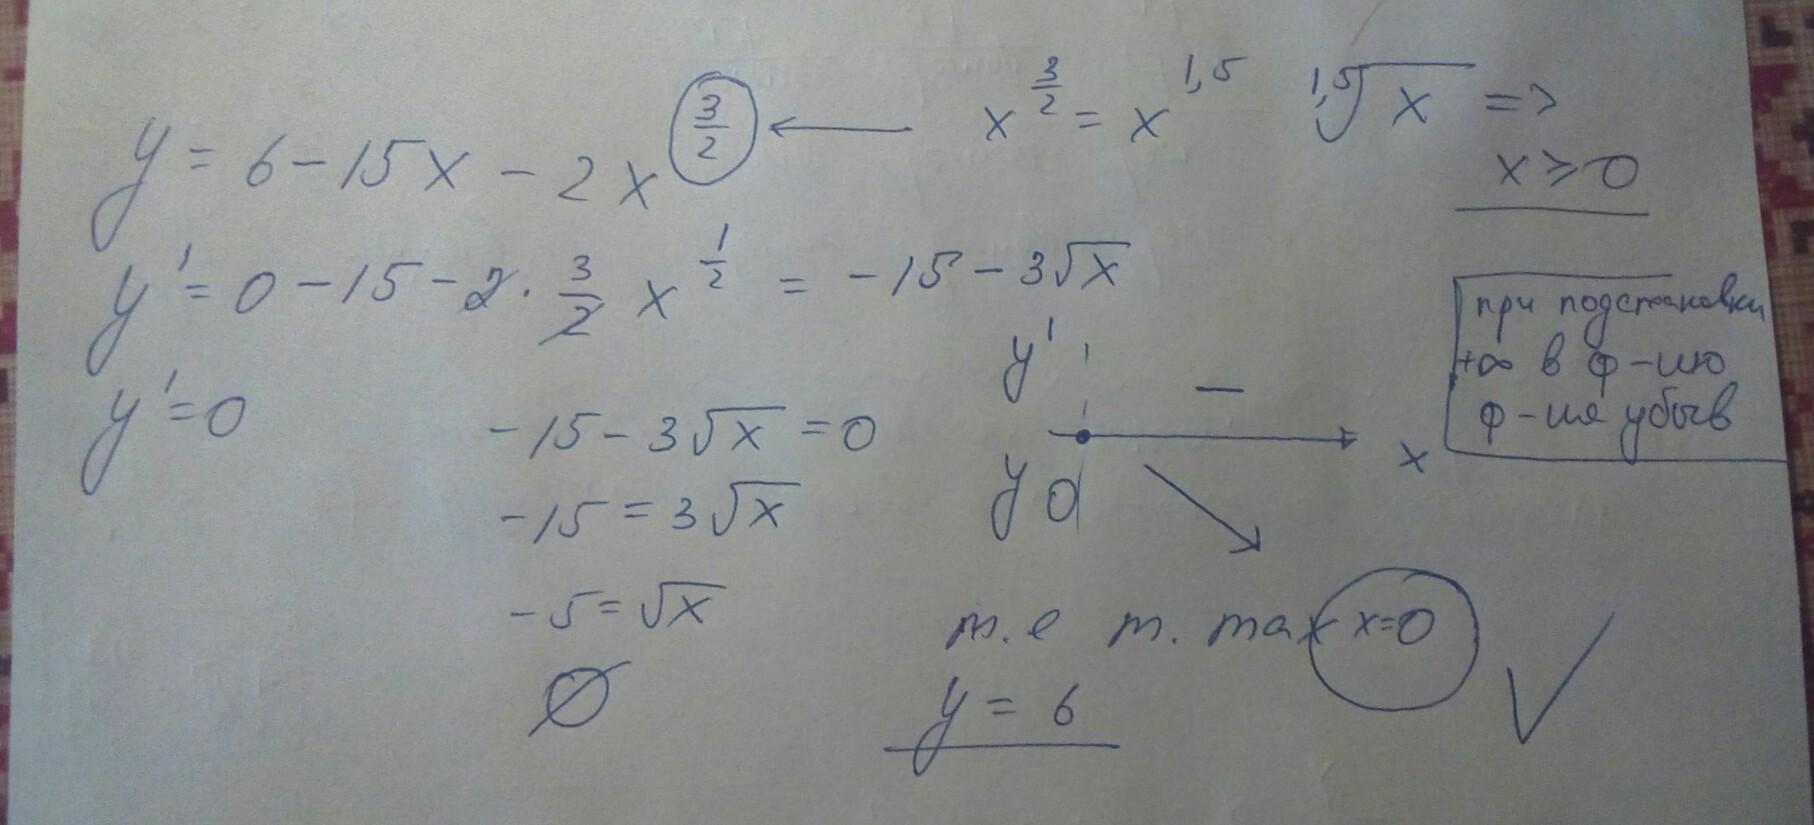 y = 6 - 15x - 2x^(3/2) ← x^(3/2) = x^(1,5) ^(1,5)√x =>
x ≥ 0
y' = 0 - 15 - 2 · 3/2 x^(1/2) = -15 - 3√x
y' = 0
-15 - 3√x = 0
-15 = 3√x
-5 = √x
∅
y' −
x
y 0
при подстановки
+∞ в ф-ию
ф-ия убыв
т.е т. max x=0
y = 6